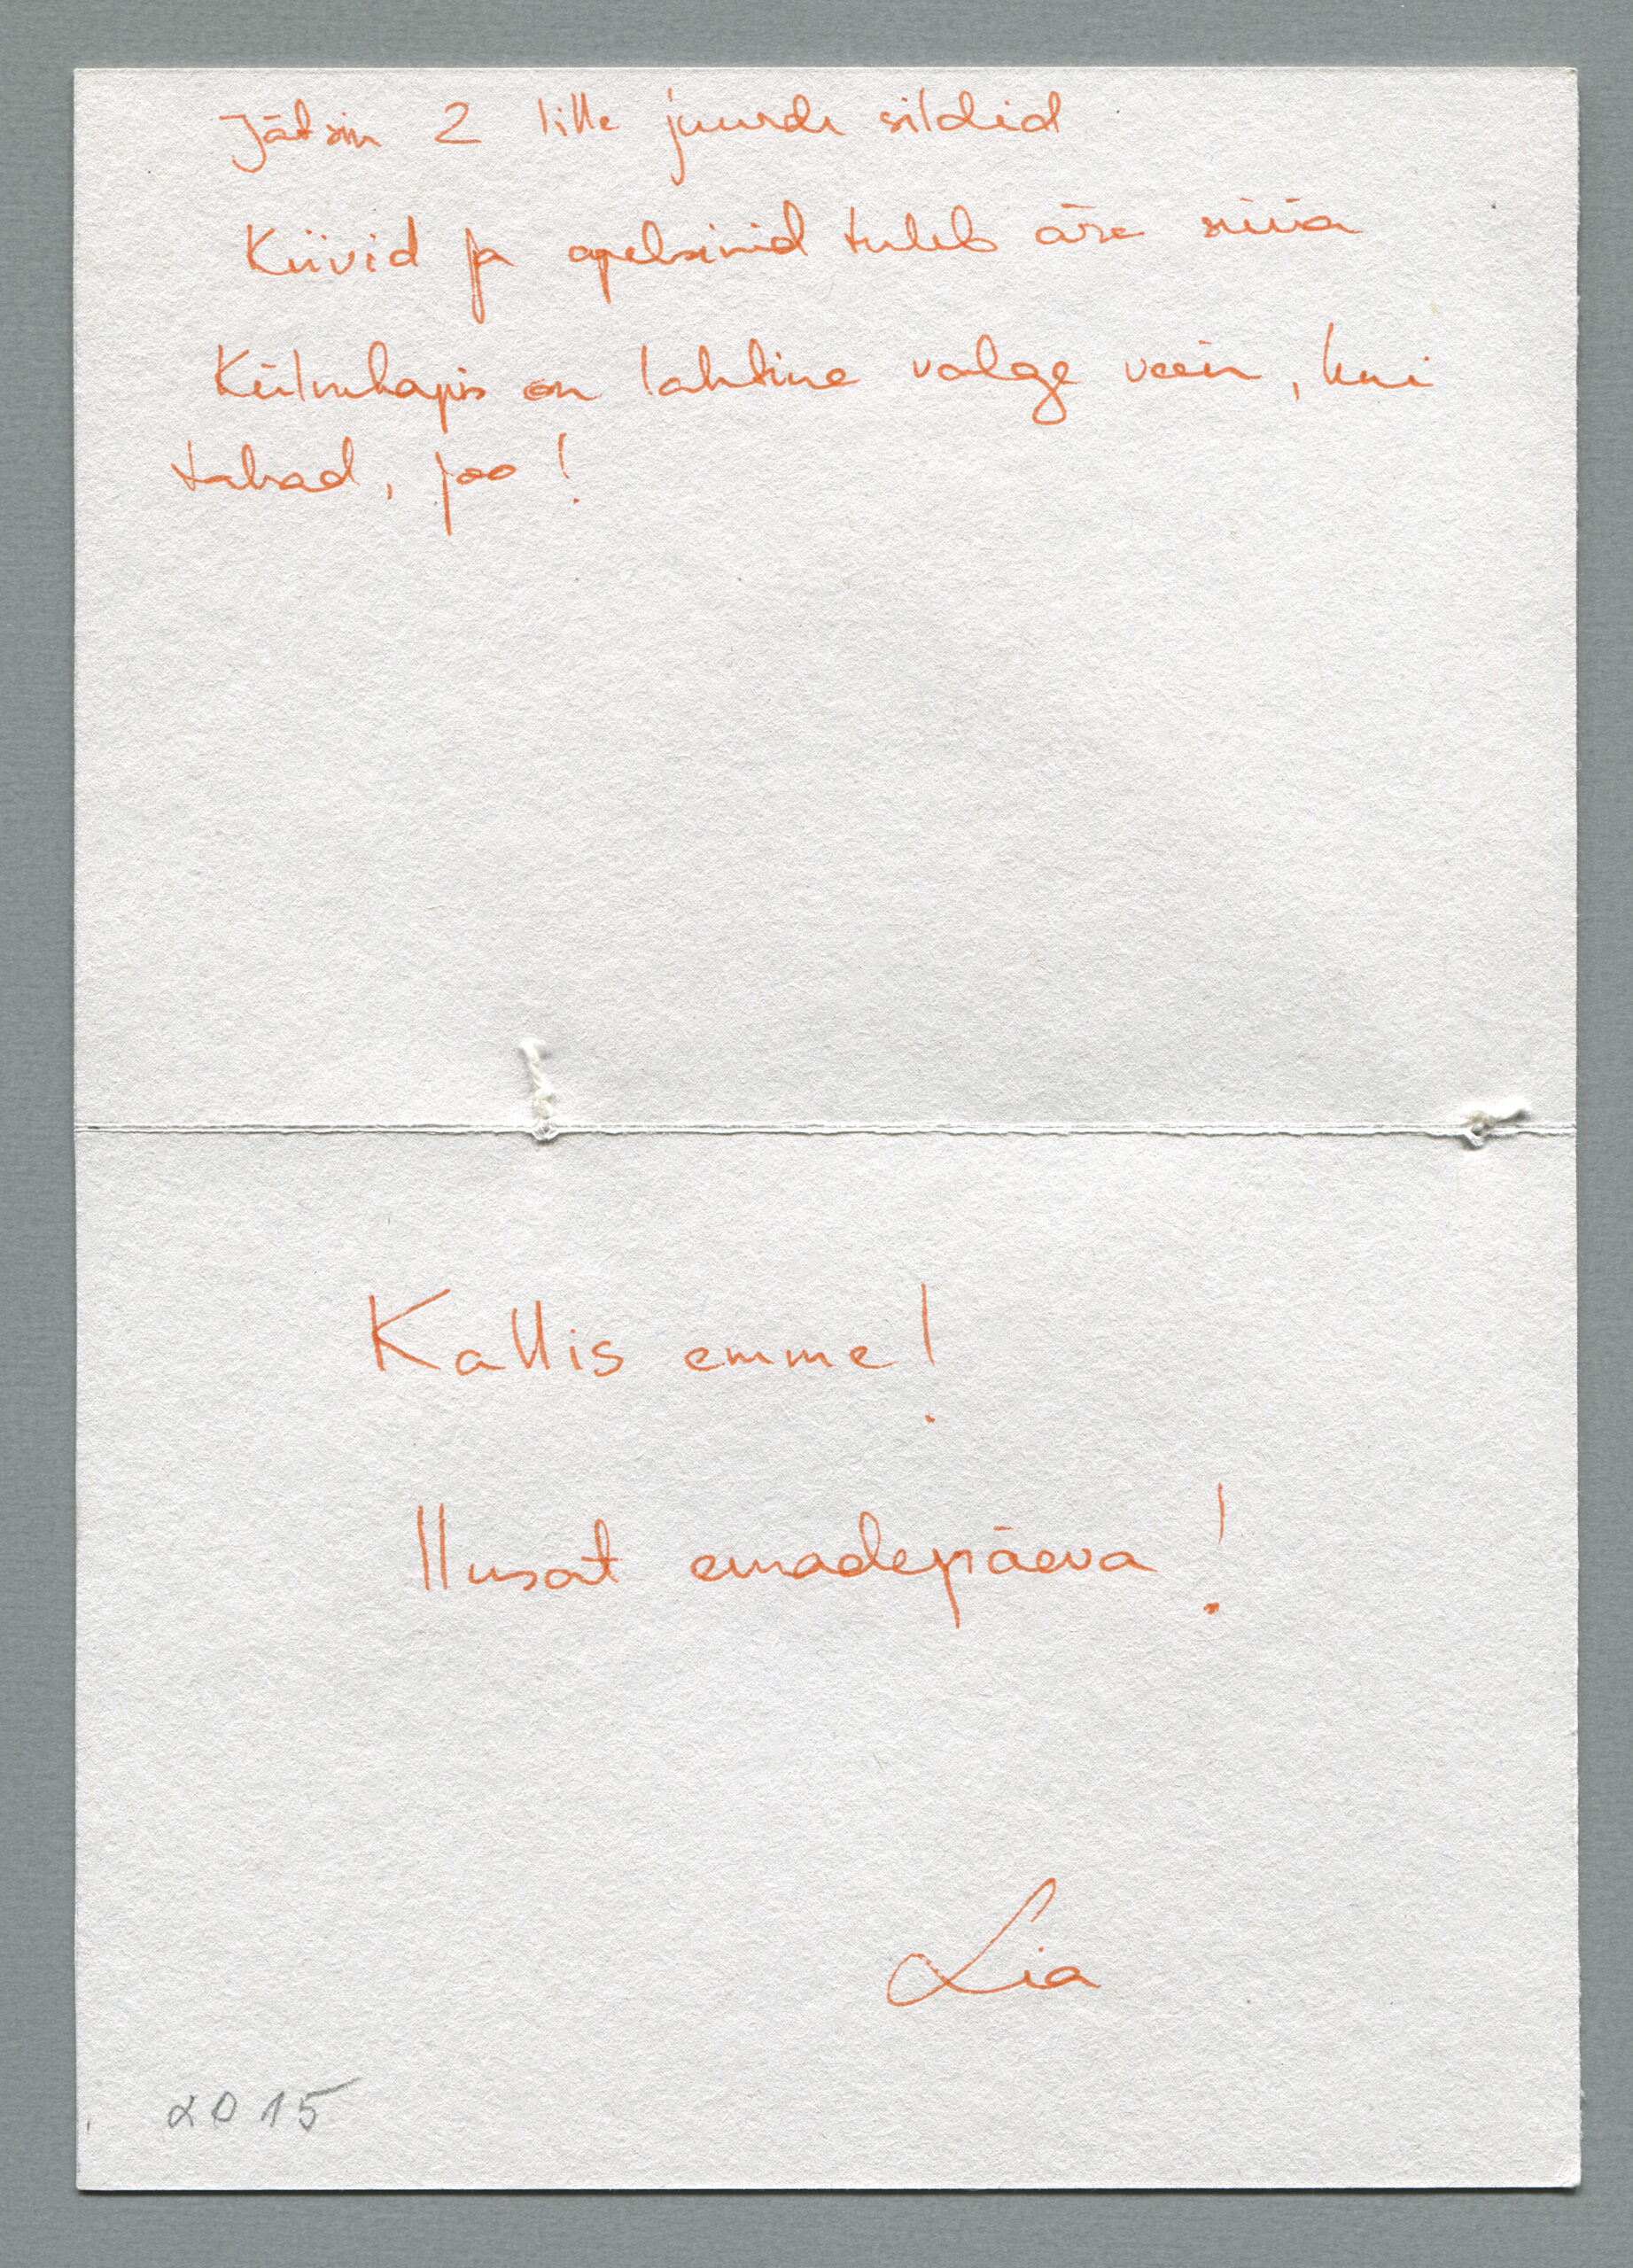 Jätsin 2 lille juurde sildid
Kiivid ja apelsinid tuleb ära süüa
Külmkapis on lahtine valge vein, kui
tahad, joo!
Kallis emme!
Ilusat emadepäeva!
Lia
2015